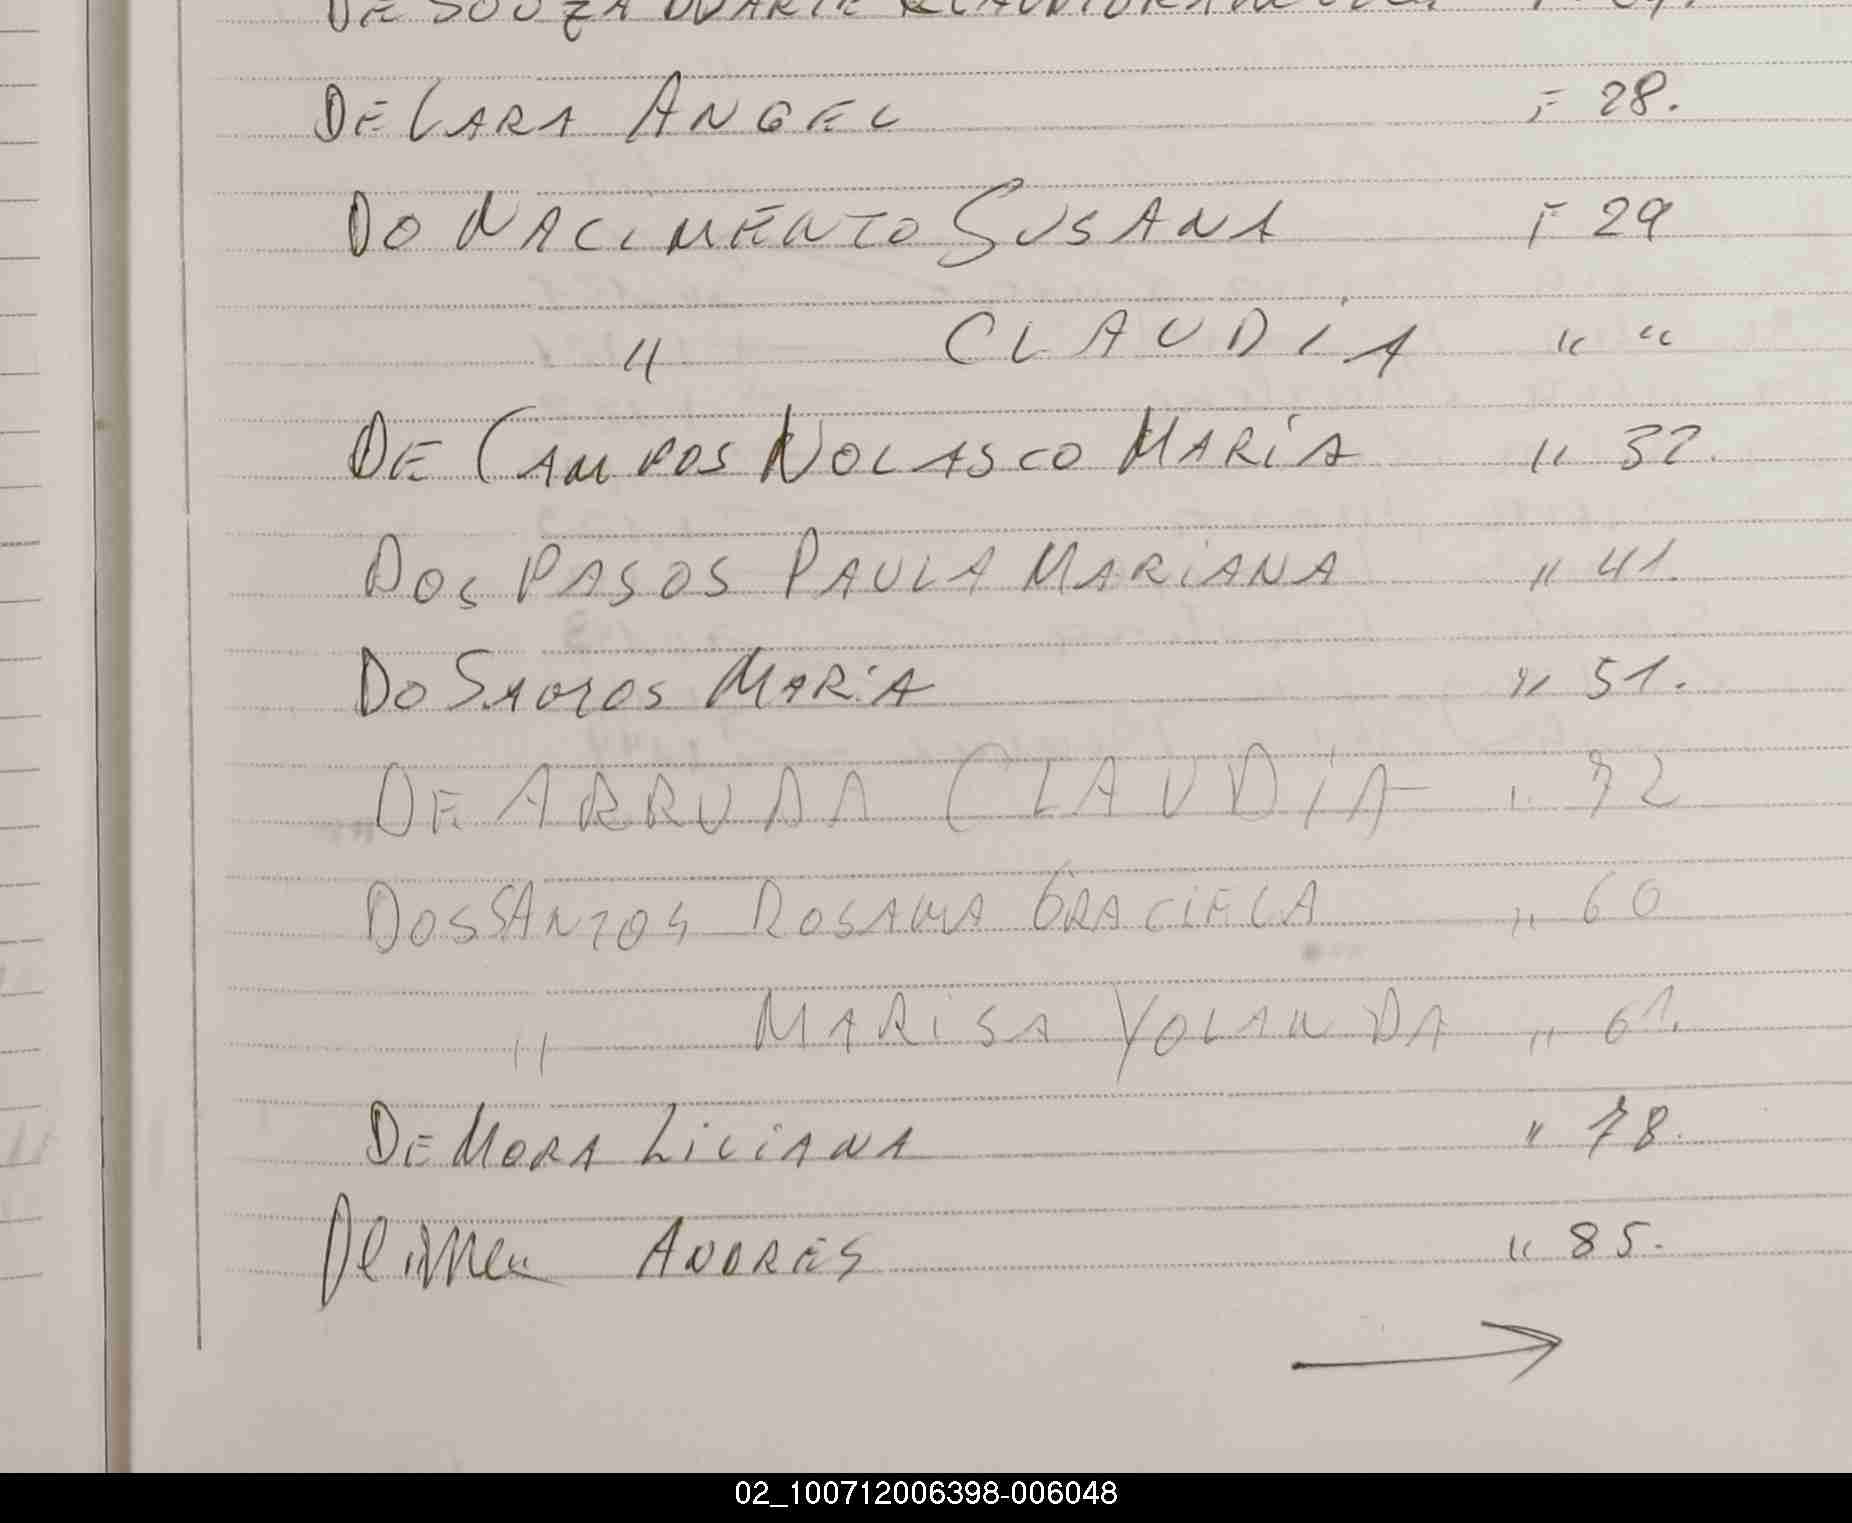 DE SOUZA DUARTE
DE LARA ANGEL F 28.
DO NACIMENTO SUSANA F 29
" CLAUDIA " "
DE CAMPOS NOLASCO MARIA " 32.
DOS PASOS PAULA MARIANA " 41.
DO SANTOS MARIA " 51.
DE ARRUDA CLAUDIA " 72
DOS SANTOS ROSANA GRACIELA " 60
" MARISA YOLANDA " 61.
DE MORA LILIANA " 78.
ANDRES " 85.
02_100712006398-006048